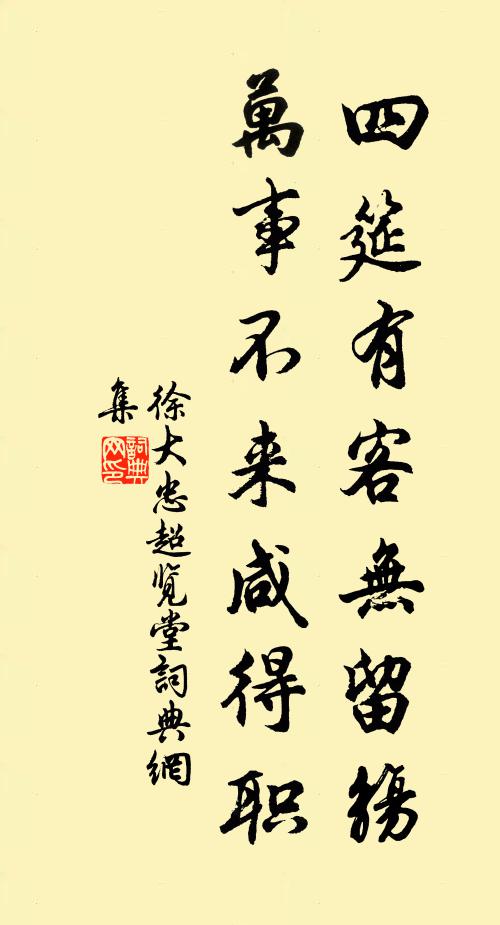 四筵有客無留觴
萬事不来咸得职
徐大忠超览堂詞典網
集
詞典网印